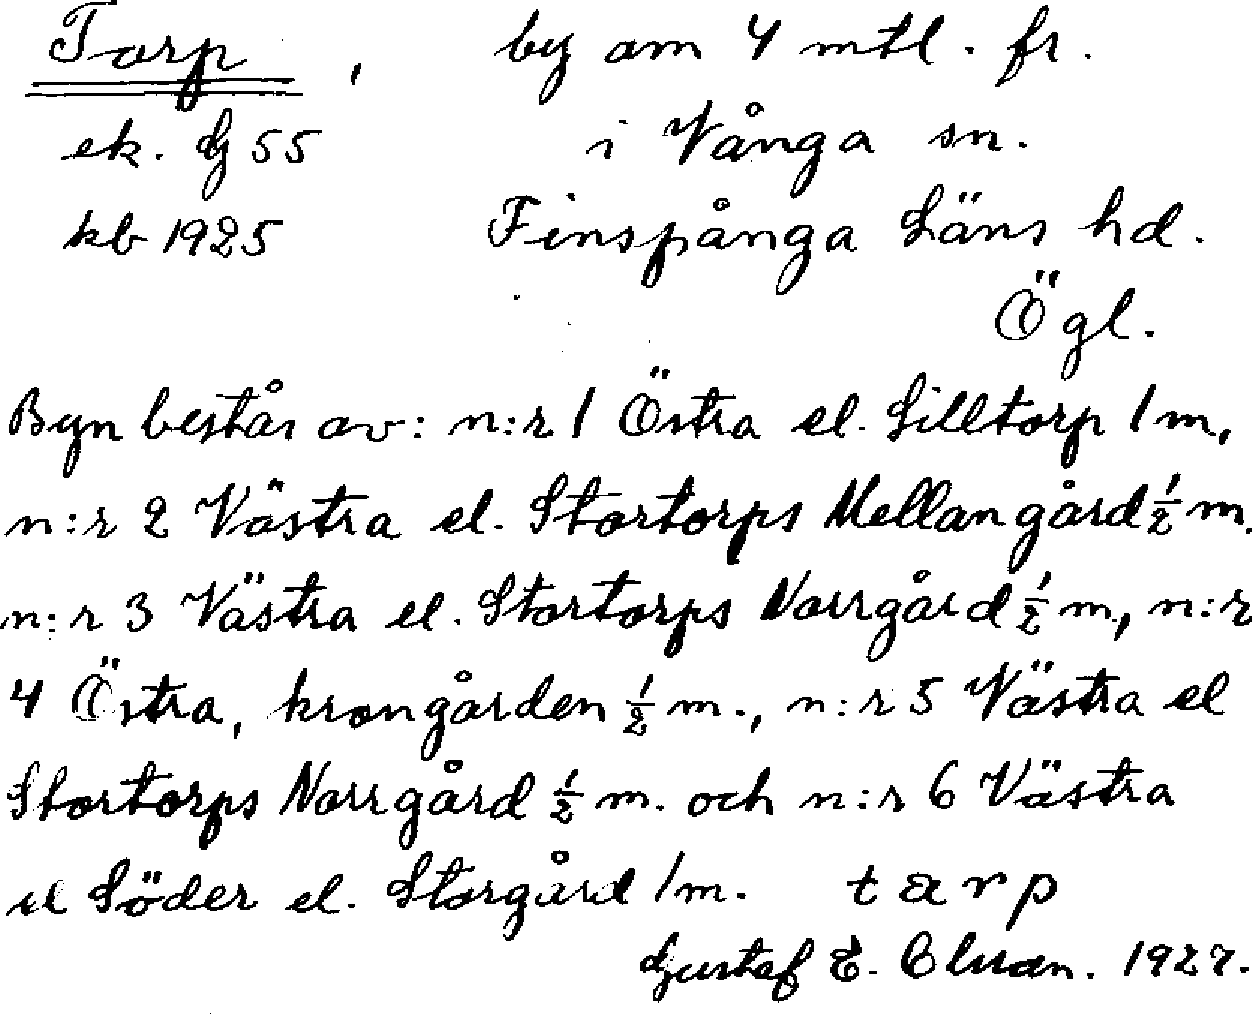 Torp, by om 4 mtl. fr.
ek. Dj 55 i Vånga sn.
kb 1925 Finspånga Läns hd.
Ögl.
Byn består av: n:r 1 Östra el. Lilltorp 1 m,
n:r 2 Västra el. Stortorps Mellangård ½ m.
n:r 3 Västra el. Stortorps Norrgård ½ m., n:r
4 Östra, krongården ½ m., n:r 5 Västra el
Stortorps Norrgård ½ m. och n:r 6 Västra
el Söder el. Storgård 1 m. tarp
Gustaf E. 1927.